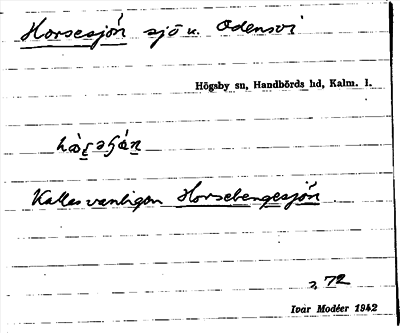 Horsesjön sjö v. Odensvi
Högsby sn, Handbörds hd, Kalm. l.
Kallas vanligen Horsebengesjön.
s. 72
Ivar Modéer 1942